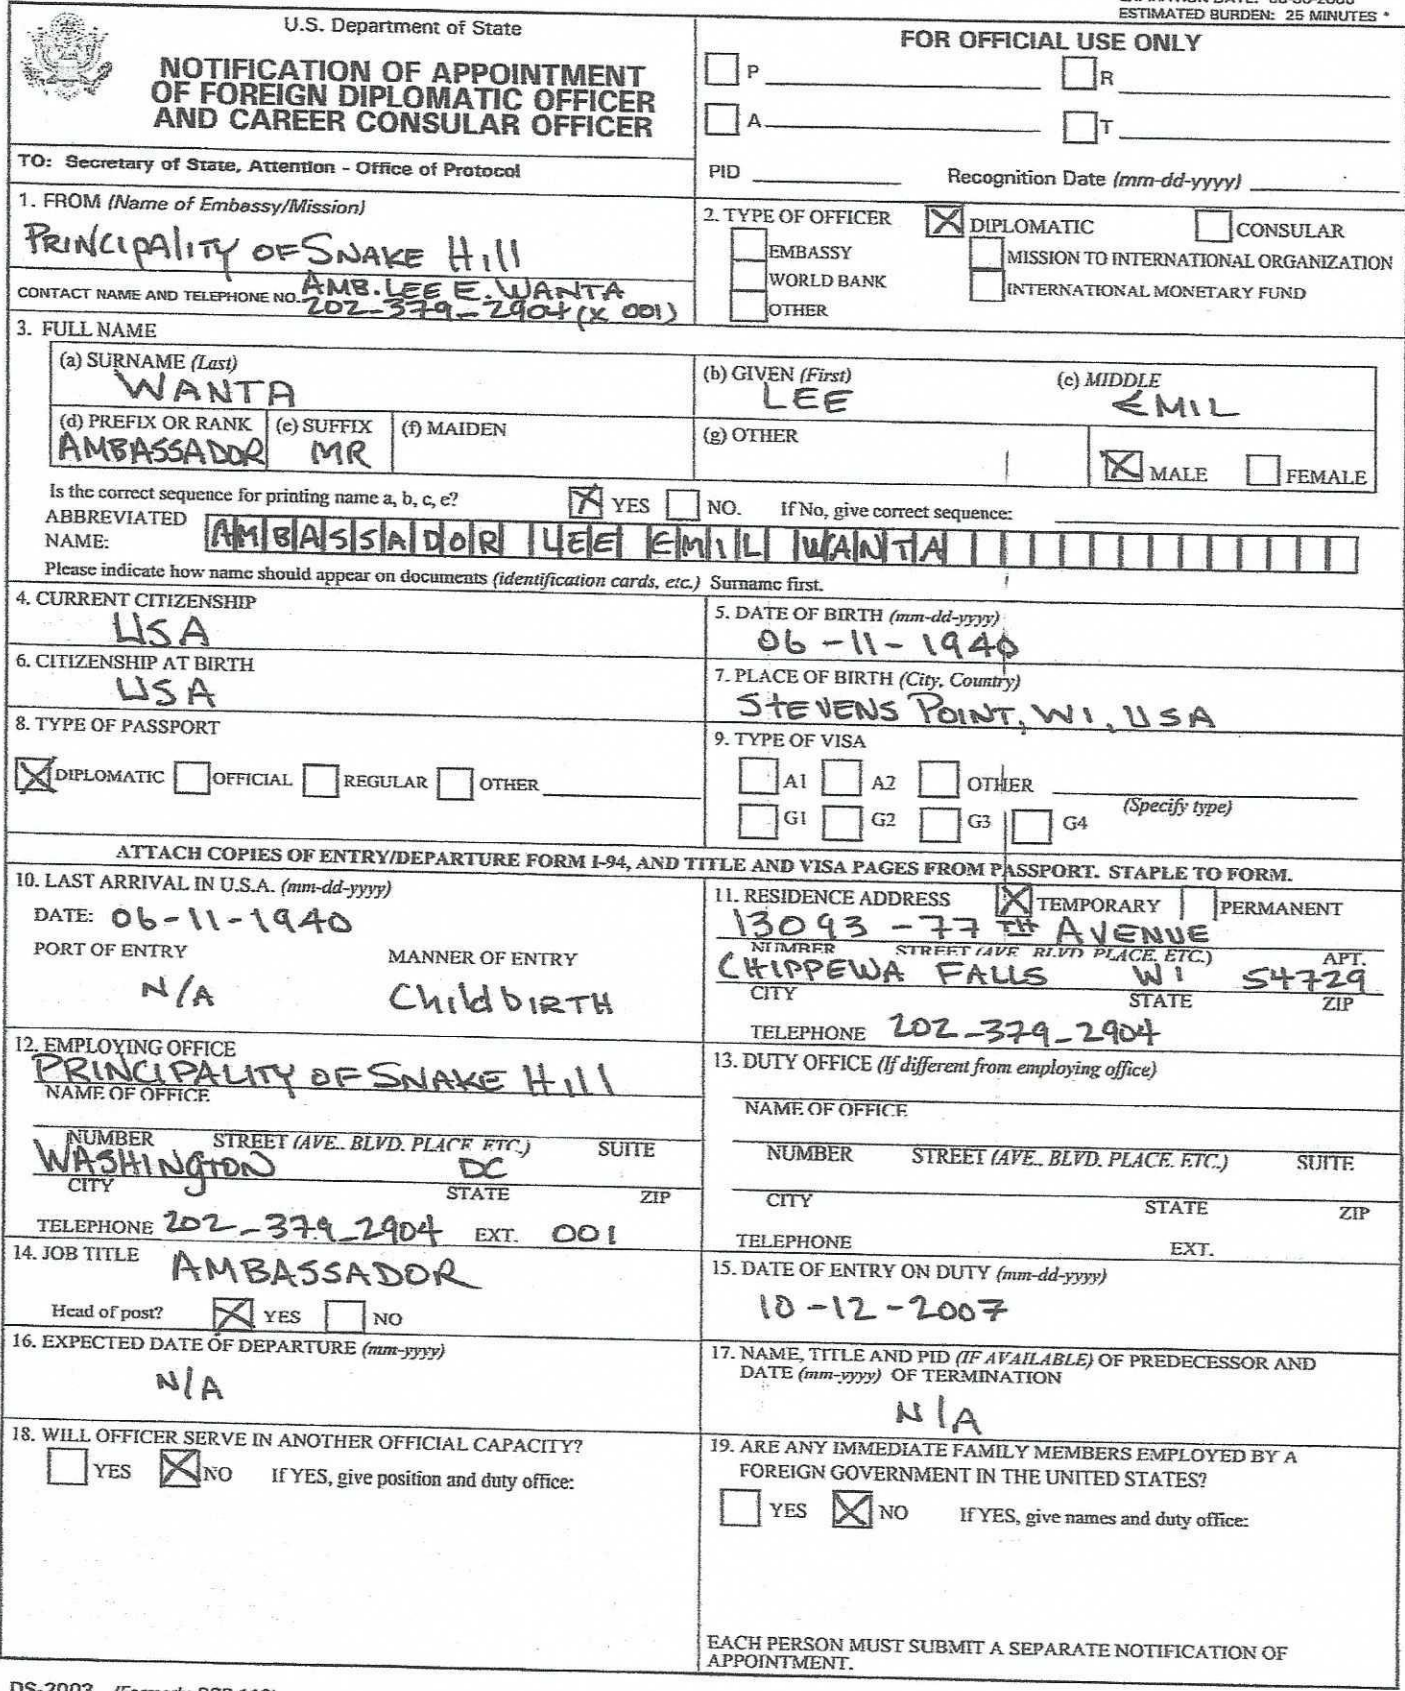 ESTIMATED BURDEN: 25 MINUTES *
U.S. Department of State
NOTIFICATION OF APPOINTMENT
OF FOREIGN DIPLOMATIC OFFICER
AND CAREER CONSULAR OFFICER
TO: Secretary of State, Attention - Office of Protocol
FOR OFFICIAL USE ONLY
P R
A T
PID Recognition Date (mm-dd-yyyy)
1. FROM (Name of Embassy/Mission)
PRINCIPALITY OF SNAKE HILL
CONTACT NAME AND TELEPHONE NO. AMB. LEE E. WANTA
202-379-2904 (X 001)
2. TYPE OF OFFICER X DIPLOMATIC CONSULAR
EMBASSY MISSION TO INTERNATIONAL ORGANIZATION
WORLD BANK INTERNATIONAL MONETARY FUND
OTHER
3. FULL NAME
(a) SURNAME (Last) (b) GIVEN (First) (c) MIDDLE
WANTA LEE EMIL
(d) PREFIX OR RANK (e) SUFFIX (f) MAIDEN (g) OTHER
AMBASSADOR MR X MALE FEMALE
Is the correct sequence for printing name a, b, c, e? X YES NO. If No, give correct sequence:
ABBREVIATED
NAME: AMBASSADOR LEE EMIL WANTA
Please indicate how name should appear on documents (identification cards, etc.) Surname first.
4. CURRENT CITIZENSHIP
USA
5. DATE OF BIRTH (mm-dd-yyyy)
06-11-1940
6. CITIZENSHIP AT BIRTH
USA
7. PLACE OF BIRTH (City, Country)
STEVENS POINT, WI, USA
8. TYPE OF PASSPORT
X DIPLOMATIC OFFICIAL REGULAR OTHER
9. TYPE OF VISA
A1 A2 OTHER
(Specify type)
G1 G2 G3 G4
ATTACH COPIES OF ENTRY/DEPARTURE FORM I-94, AND TITLE AND VISA PAGES FROM PASSPORT. STAPLE TO FORM.
10. LAST ARRIVAL IN U.S.A. (mm-dd-yyyy)
DATE: 06-11-1940
PORT OF ENTRY MANNER OF ENTRY
N/A Childbirth
11. RESIDENCE ADDRESS X TEMPORARY PERMANENT
13093 - 77TH AVENUE
NUMBER STREET (AVE. BLVD. PLACE, ETC.) APT.
CHIPPEWA FALLS WI 54729
CITY STATE ZIP
TELEPHONE 202-379-2904
12. EMPLOYING OFFICE
PRINCIPALITY OF SNAKE HILL
NAME OF OFFICE
NUMBER STREET (AVE., BLVD. PLACE, ETC.) SUITE
WASHINGTON DC
CITY STATE ZIP
TELEPHONE 202-379-2904 EXT. 001
13. DUTY OFFICE (If different from employing office)
NAME OF OFFICE
NUMBER STREET (AVE., BLVD. PLACE. ETC.) SUITE
CITY STATE ZIP
TELEPHONE EXT.
14. JOB TITLE AMBASSADOR
Head of post? X YES NO
15. DATE OF ENTRY ON DUTY (mm-dd-yyyy)
10-12-2007
16. EXPECTED DATE OF DEPARTURE (mm-yyyy)
N/A
17. NAME, TITLE AND PID (IF AVAILABLE) OF PREDECESSOR AND
DATE (mm-yyyy) OF TERMINATION
N/A
18. WILL OFFICER SERVE IN ANOTHER OFFICIAL CAPACITY?
YES X NO If YES, give position and duty office:
19. ARE ANY IMMEDIATE FAMILY MEMBERS EMPLOYED BY A
FOREIGN GOVERNMENT IN THE UNITED STATES?
YES X NO If YES, give names and duty office:
EACH PERSON MUST SUBMIT A SEPARATE NOTIFICATION OF
APPOINTMENT.
DS-2003